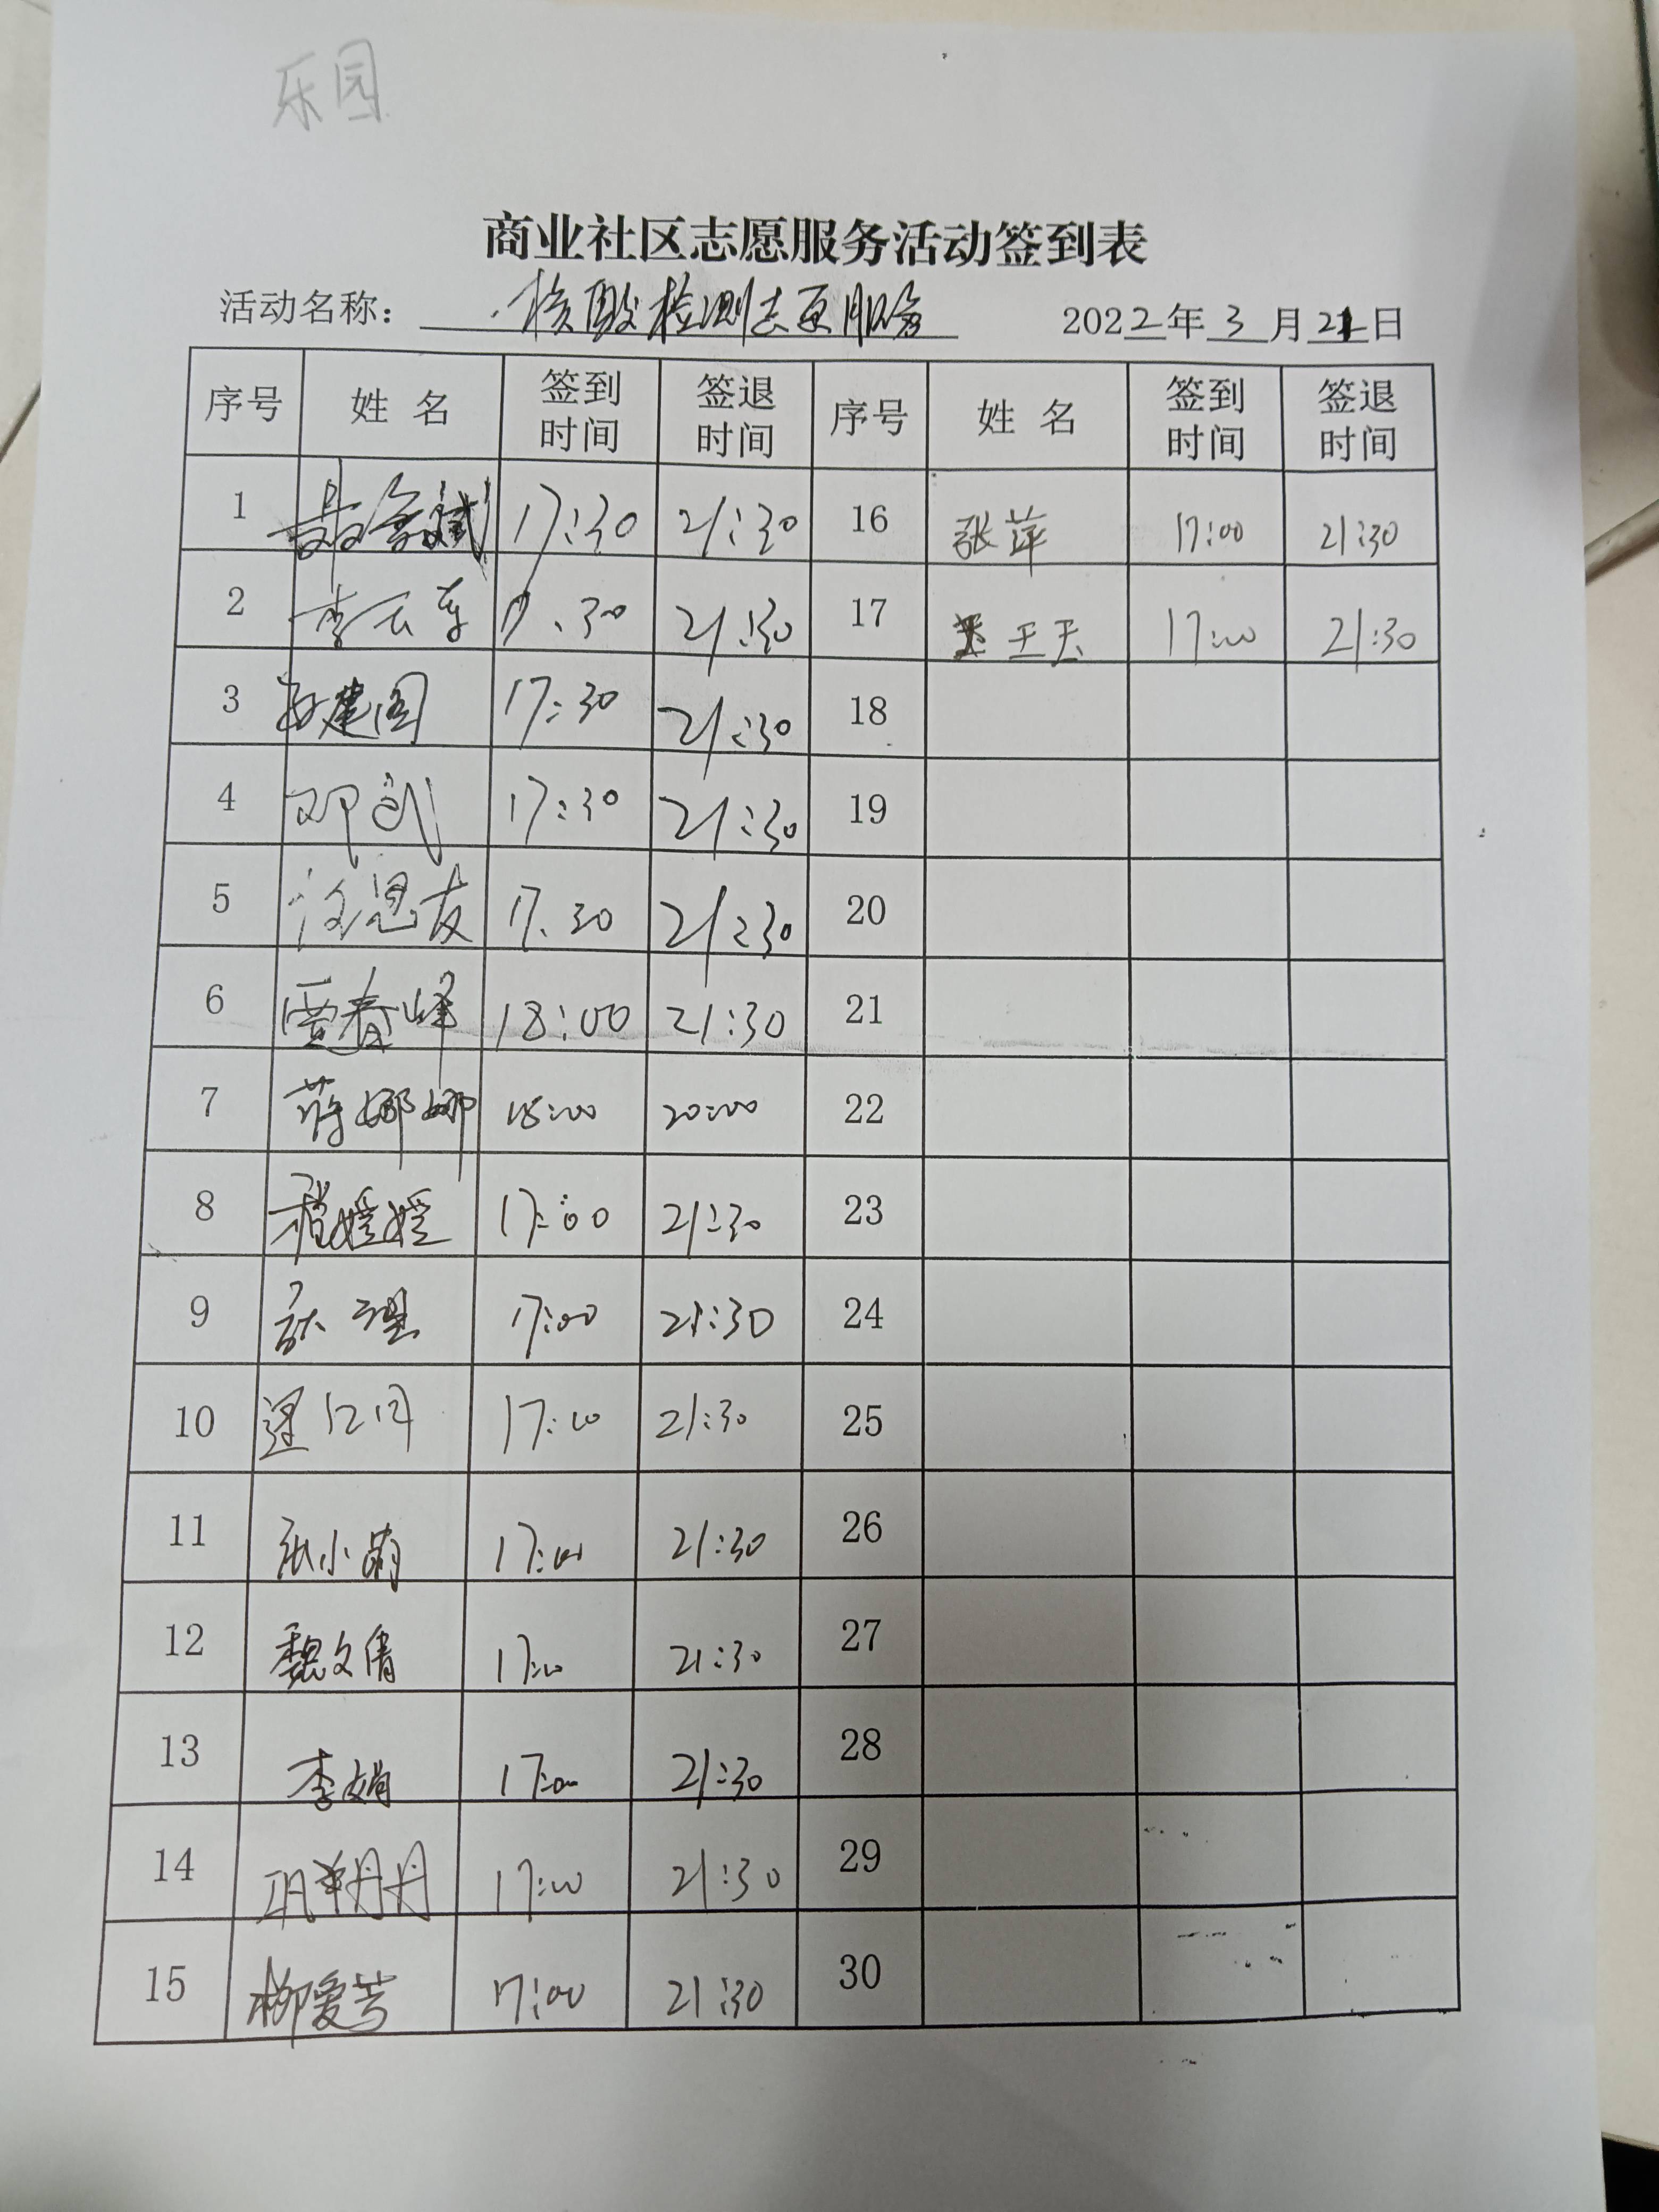 乐园
商业社区志愿服务活动签到表
活动名称： 核酸检测志愿服务 2022年3月21日
序号 姓 名 签到时间 签退时间 序号 姓 名 签到时间 签退时间
1 17:30 21:30 16 张萍 17:00 21:30
2 李云 17.30 21:30 17 王 17:00 21:30
3 建国 17:30 21:30 18
4 邓武 17:30 21:30 19
5 恩友 17.30 21:30 20
6 贾春峰 18:00 21:30 21
7 蒋娜娜 18:00 20:00 22
8 程媛媛 17:00 21:30 23
9 17:00 21:30 24
10 17:00 21:30 25
11 张小萌 17:00 21:30 26
12 魏文倩 17:00 21:30 27
13 李娟 17:00 21:30 28
14 巩丹丹 17:00 21:30 29
15 柳爱芳 17:00 21:30 30